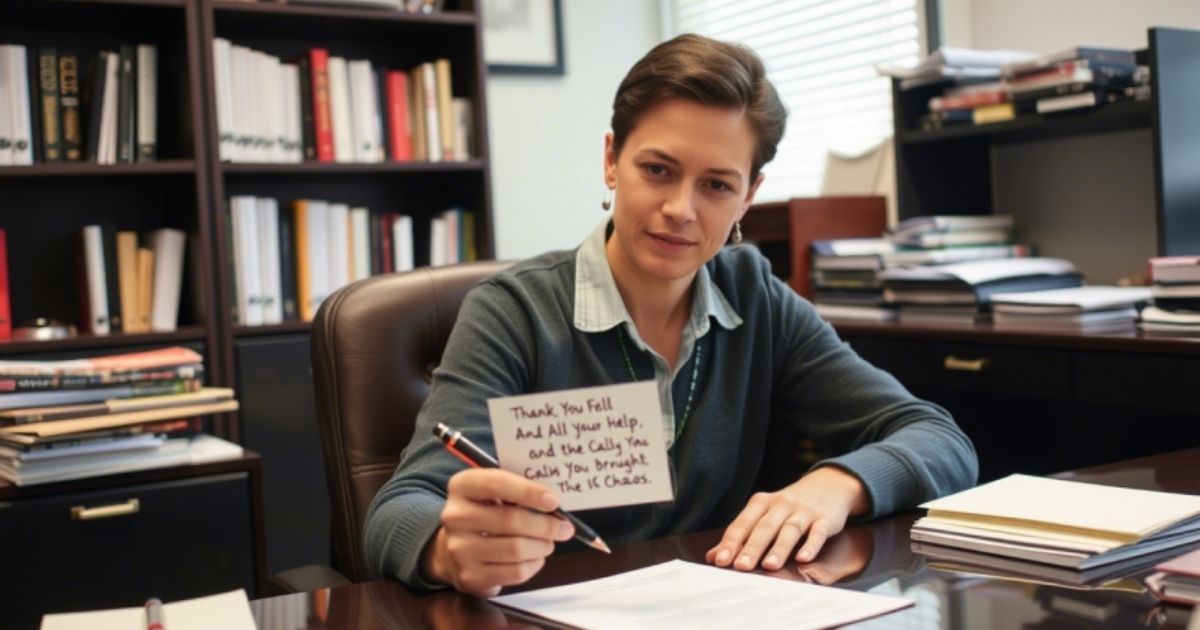 Thank You Fell
And All Your Help,
and the Cally You
Calm You Brought
The 16 Chaos.